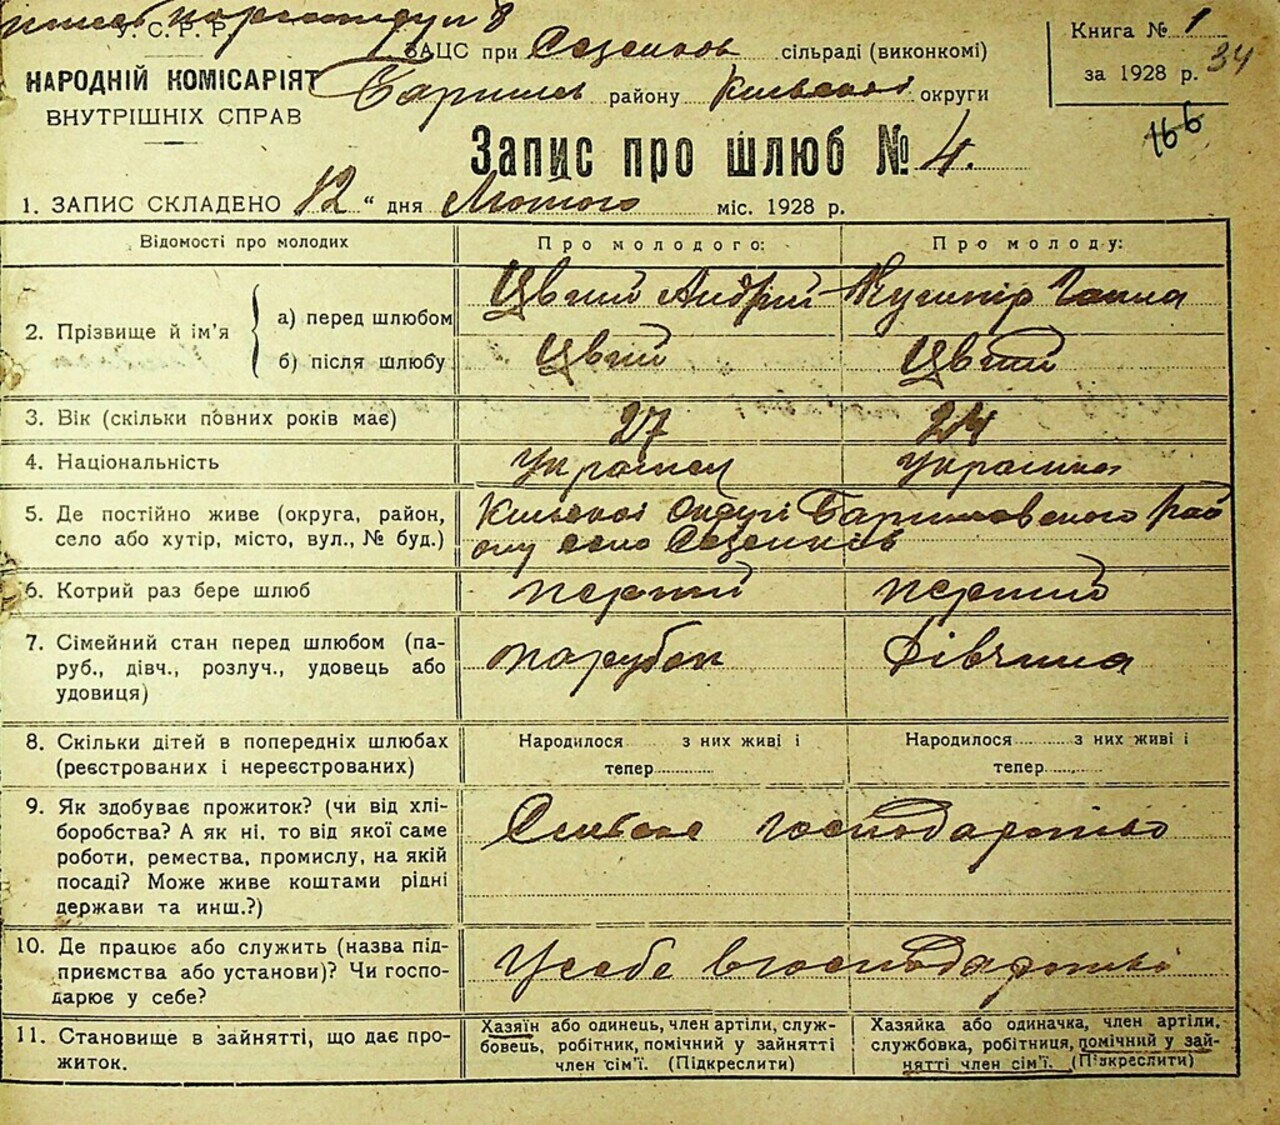 У. С. Р. Р.
НАРОДНІЙ КОМІСАРІЯТ
ВНУТРІШНІХ СПРАВ
ЗАЦС при Сезенков сільраді (виконкомі)
Баришев району Київської округи
Книга № 1
за 1928 р. 34
166
Запис про шлюб № 4.
1. ЗАПИС СКЛАДЕНО 12 “ дня Лютого міс. 1928 р.
Відомості про молодих
Про молодого:
Про молоду:
2. Прізвище й ім’я
а) перед шлюбом
Цвгий Андрій
Кушнір Ганна
б) після шлюбу
Цвгий
Цвгий
3. Вік (скільки повних років має)
27
24
4. Національність
Українец
Українка
5. Де постійно живе (округа, район,
село або хутір, місто, вул., № буд.)
Київської Округі Баришовського рай
ону село Сезенків
6. Котрий раз бере шлюб
перший
перший
7. Сімейний стан перед шлюбом (па-
руб., дівч., розлуч., удовець або
удовиця)
парубок
дівчина
8. Скільки дітей в попередніх шлюбах
(реєстрованих і нереєстрованих)
Народилося з них живі і
тепер
Народилося з них живі і
тепер
9. Як здобуває прожиток? (чи від хлі-
боробства? А як ні, то від якої саме
роботи, ремества, промислу, на якій
посаді? Може живе коштами рідні
держави та инш.?)
Сільське господарство
10. Де працює або служить (назва під-
приємства або установи)? Чи госпо-
дарює у себе?
У себе в господарстві
11. Становище в зайнятті, що дає про-
житок.
Хазяїн або одинець, член артілі, служ-
бовець, робітник, помічний у зайнятті
член сім’ї. (Підкреслити)
Хазяйка або одиначка, член артілі,
службовка, робітниця, помічний у зай-
нятті член сім’ї. (Підкреслити)